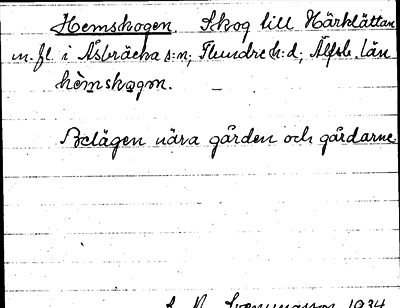 Hemskogen. Skog till Härklättan
m. fl. i Åsbräcka s:n; Flundre h:d; Älfsb. län
hèmskogɔn.
Belägen nära gården och gårdarne.
1934